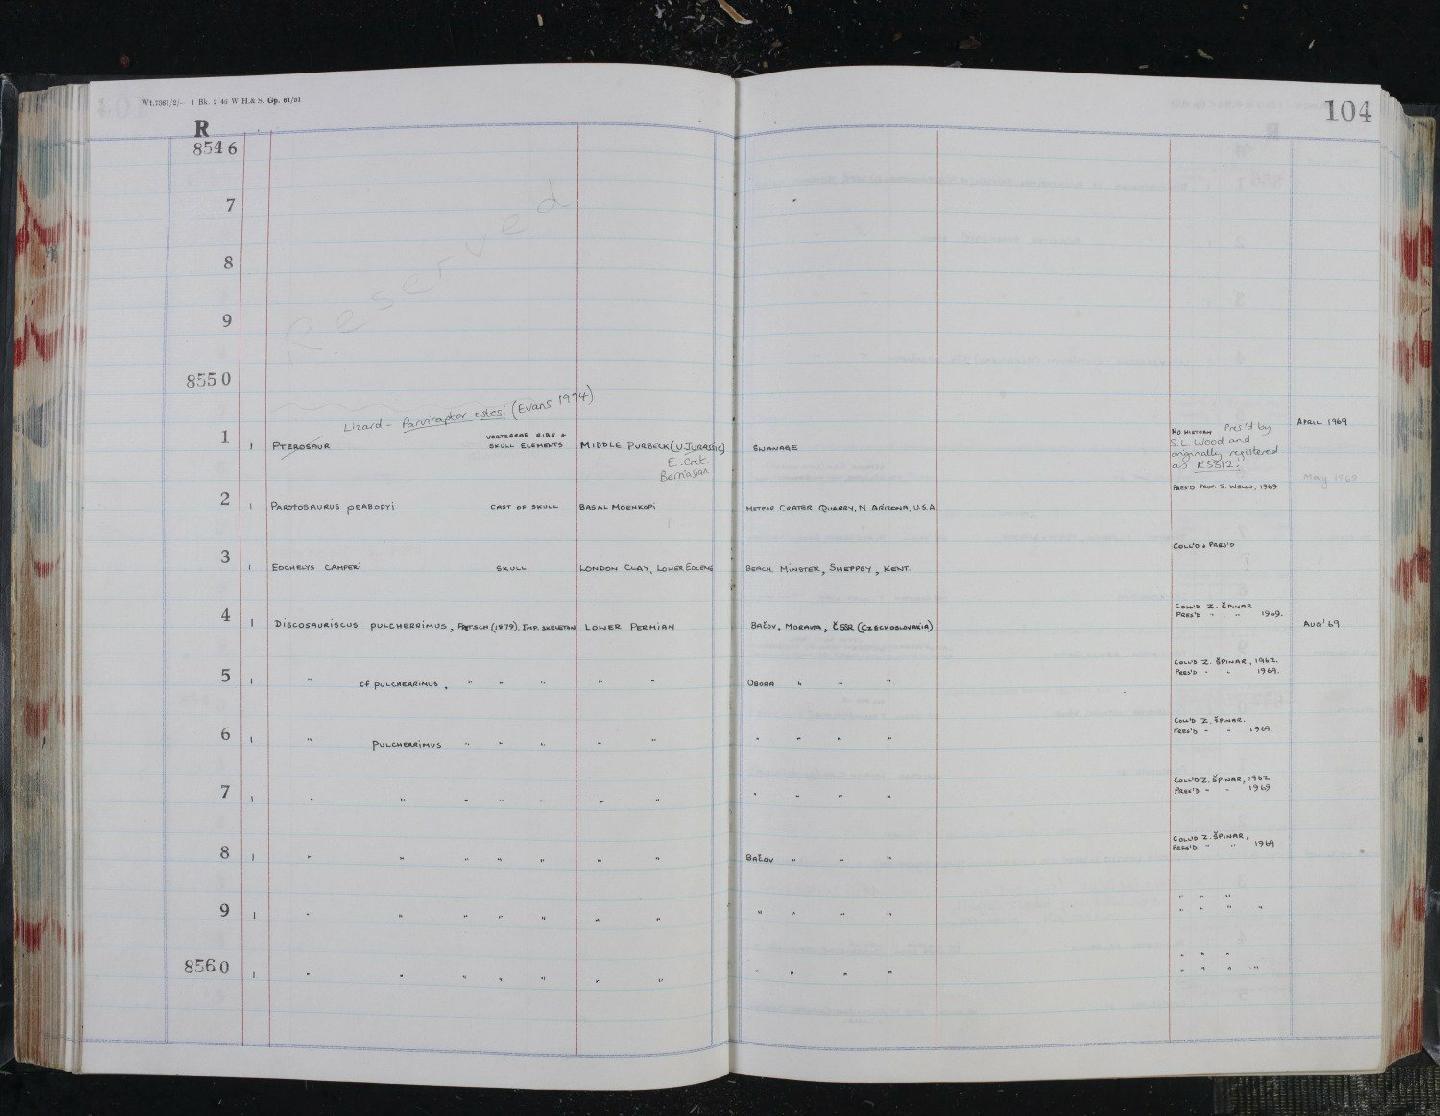 Wt.7361/2/- 1 Bk. : 46 W H.& S. Gp. 61/51
104
R
8546
7
8
9
Reserved
8550
Lizard - Parviraptor estesi (Evans 1994)
1 1 PTEROSAUR VERTEBRAE RIBS + SKULL ELEMENTS MIDDLE PURBECK (U. JURASSIC) SWANAGE NO HISTORY Pres'd by APRIL 1969
E. Cret. S.L. Wood and
Berriasian originally registered
as K5812.
2 1 PAROTOSAURUS PEABODYI CAST OF SKULL BASAL MOENKOPI METEOR CRATER QUARRY, N ARIZONA, U.S.A PRES'D PROF. S. WELLS, 1969 May 1969
3 1 EOCHELYS CAMPERI SKULL LONDON CLAY, LOWER EOCENE BEACH MINSTER, SHEPPEY, KENT. COLL'D & PRES'D
4 1 DISCOSAURISCUS PULCHERRIMUS, FRITSCH (1879). IMP. SKELETON LOWER PERMIAN BAČOV, MORAVA, ČSSR (CZECHOSLOVAKIA) COLL'D Z. ŠPINAR AUG' 69
PRES'D " " 1969.
5 1 " CF PULCHERRIMUS, " " " " " UBORA " " " COLL'D Z. ŠPINAR, 1962.
PRES'D " " 1969.
6 1 " PULCHERRIMUS " " " " " " " " " COLL'D Z. ŠPINAR.
PRES'D " " 1969
7 1 " " " " " " " " " " " COLL'D Z. ŠPINAR, 1962
PRES'D " " 1969
8 1 " " " " " " " BAČOV " " " COLL'D Z. ŠPINAR,
PRES'D " " 1969
9 1 " " " " " " " " " " " " " "
" " " "
8560 1 " " " " " " " " " " " " " "
" " " "